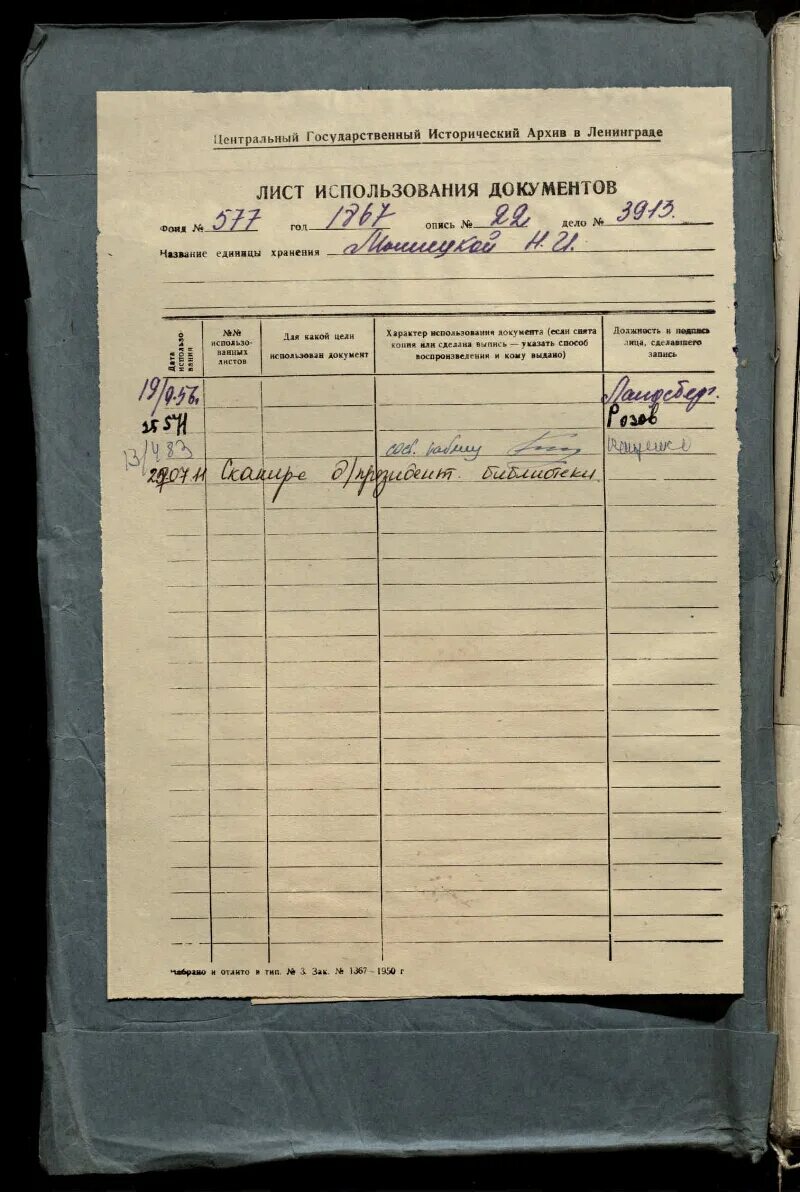 Центральный Государственный Исторический Архив в Ленинграде
ЛИСТ ИСПОЛЬЗОВАНИЯ ДОКУМЕНТОВ
Фонд № 577 год 1867 опись № 22 дело № 3913.
Название единицы хранения Н. И.
Дата использования
№№ использо-
ванных
листов
Для какой цели
использован документ
Характер использования документа (если снята
копия или сделана выпись — указать способ
воспроизведения и кому выдано)
Должность и подпись
лица, сделавшего
запись
19/ Ландсберг.
Розов
13/483
07.11 Сканир-е д/президент. библиотеки
Набрано и отлито в тип. № 3. Зак. № 1367—1950 г